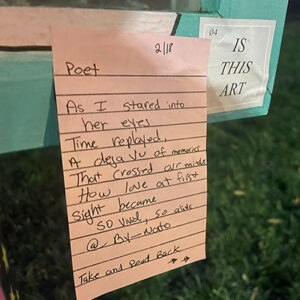 2/18
Poet
As I stared into
her eyes
Time replayed
A deja vu of memories
That crossed our minds
How love at first
Sight became
so vivid, so alive
@ By - Nato
Take and Read Back
04
IS
THIS
ART